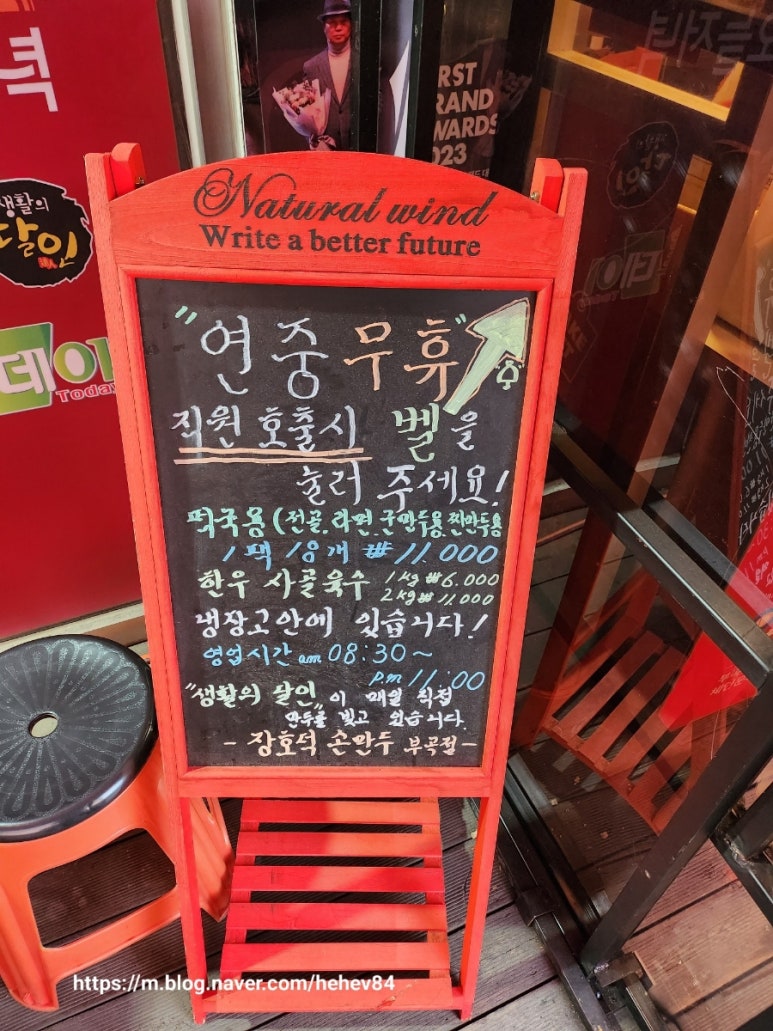 녁
생활의
달인
데이
Today
RST
RAND
WARDS
023
Natural wind
Write a better future
"연중무휴"
직원 호출시 벨을
눌러 주세요!
떡국용(전골.라면.군만두용.찐만두용
1팩 18개 ₩11.000
한우 사골육수 1kg ₩6.000
2kg ₩11.000
냉장고안에 있습니다!
영업시간 am 08:30~
pm 11:00
"생활의 달인"이 매일 직접
만두를 빚고 있습니다.
- 장호덕 손만두 부곡점 -
https://m.blog.naver.com/hehev84